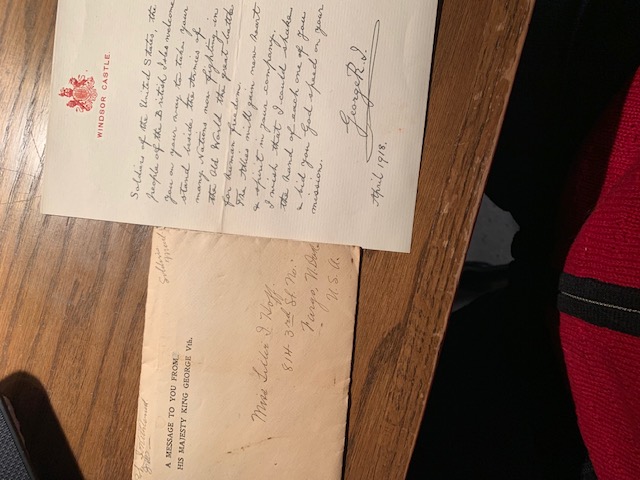 WINDSOR CASTLE.
Soldiers of the United States, the
people of the British Isles welcome
you on your way to take your
stand beside the Armies of
many Nations now fighting in
the Old World the great battle
for human freedom.
The Allies will gain new heart
& spirit in your company.
I wish that I could shake
the hand of each one of you
& bid you God speed on your
mission.
George R.I.
April 1918.
A MESSAGE TO YOU FROM
HIS MAJESTY KING GEORGE Vth.
Miss
I Hoff.
814 3rd St. No.
Fargo, N. Dak
U.S.A.